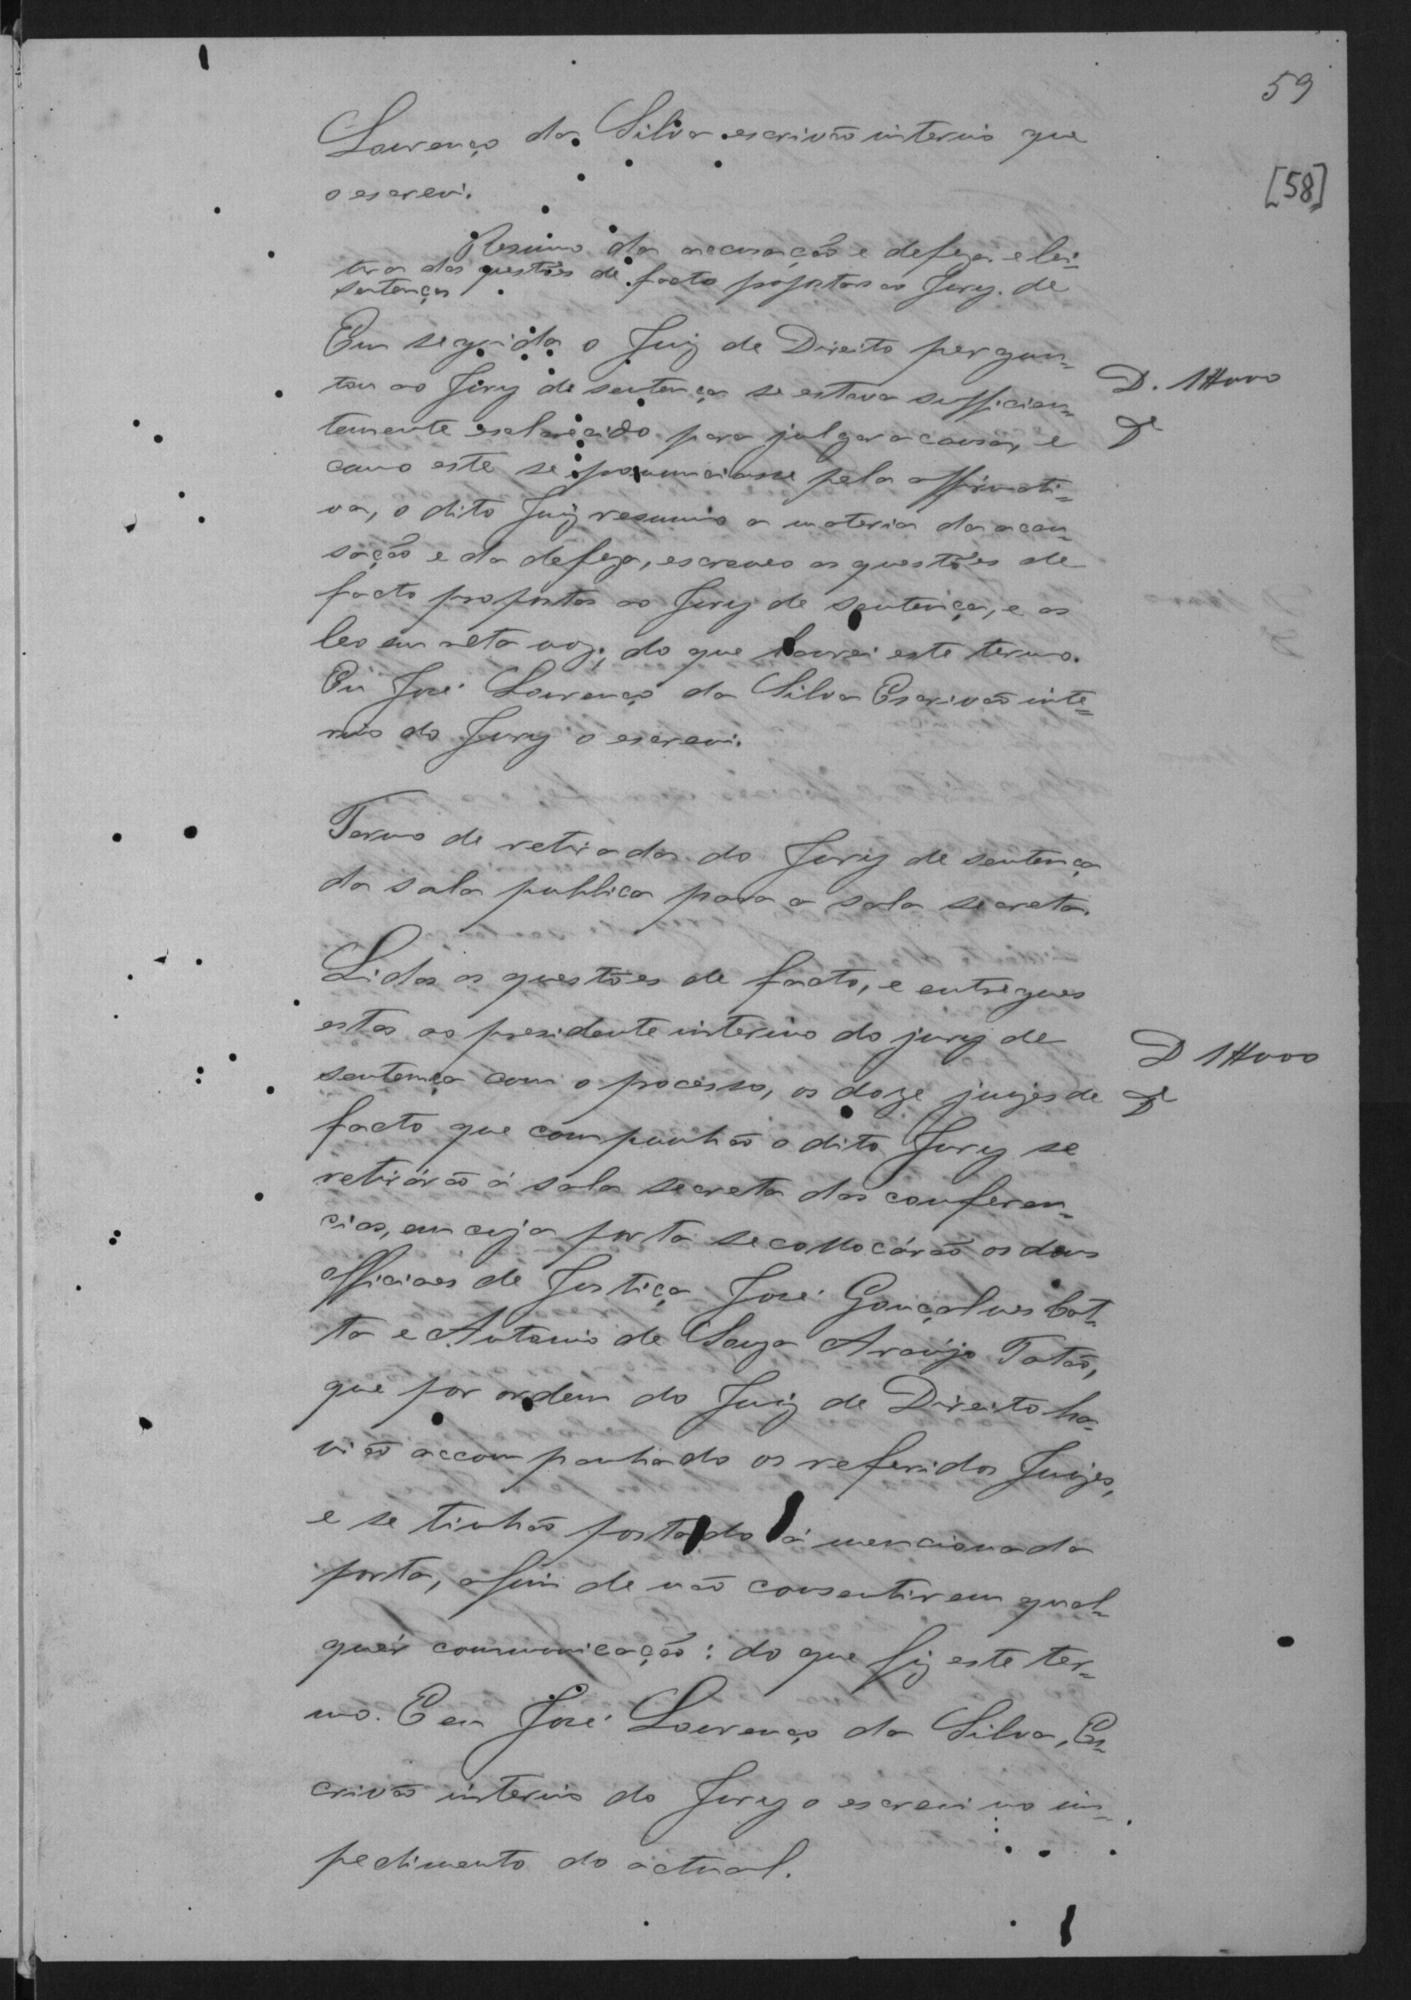 59
[58]
Lourenço da Silva escrivão interino que
o escrevi.
Resumo da accusação e defeza e lei-
tura das questões de facto propostas ao Jury de
sentença
Em seguida o Juiz de Direito pergun-
tou ao Jury de sentença se estava sufficien-
D. 1$000
temente esclarecido para julgar a causa, e
como este se pronunciasse pela affirmati-
va, o dito Juiz resumio a materia da accu-
sação e da defeza, escreveo as questões de
facto propostas ao Jury de sentença, e as
leo em alta voz; do que lavrei este termo.
Eu José Lourenço da Silva Escrivão inte-
rino do Jury o escrevi.
Termo de retirada do Jury de sentença
da sala publica para a sala secreta.
Lidas as questões de facto, e entregues
estas ao presidente interino do jury de
D 1$000
sentença com o processo, os doze juizes de
facto que compunhão o dito Jury se
retirárão á sala secreta das conferen-
cias, em cuja porta se collocárão os dous
officiaes de Justiça José Gonçalves Cot-
ta e Antonio de Souza Araújo Tatão,
que por ordem do Juiz de Direito ha-
vião accompanhado os referidos Juizes,
e se tinhão postado á mencionada
porta, afim de não consentirem qual-
quér communicação: do que fiz este ter-
mo. E eu José Lourenço da Silva, Es-
crivão interino do Jury o escrevi no im-
pedimento do actual.